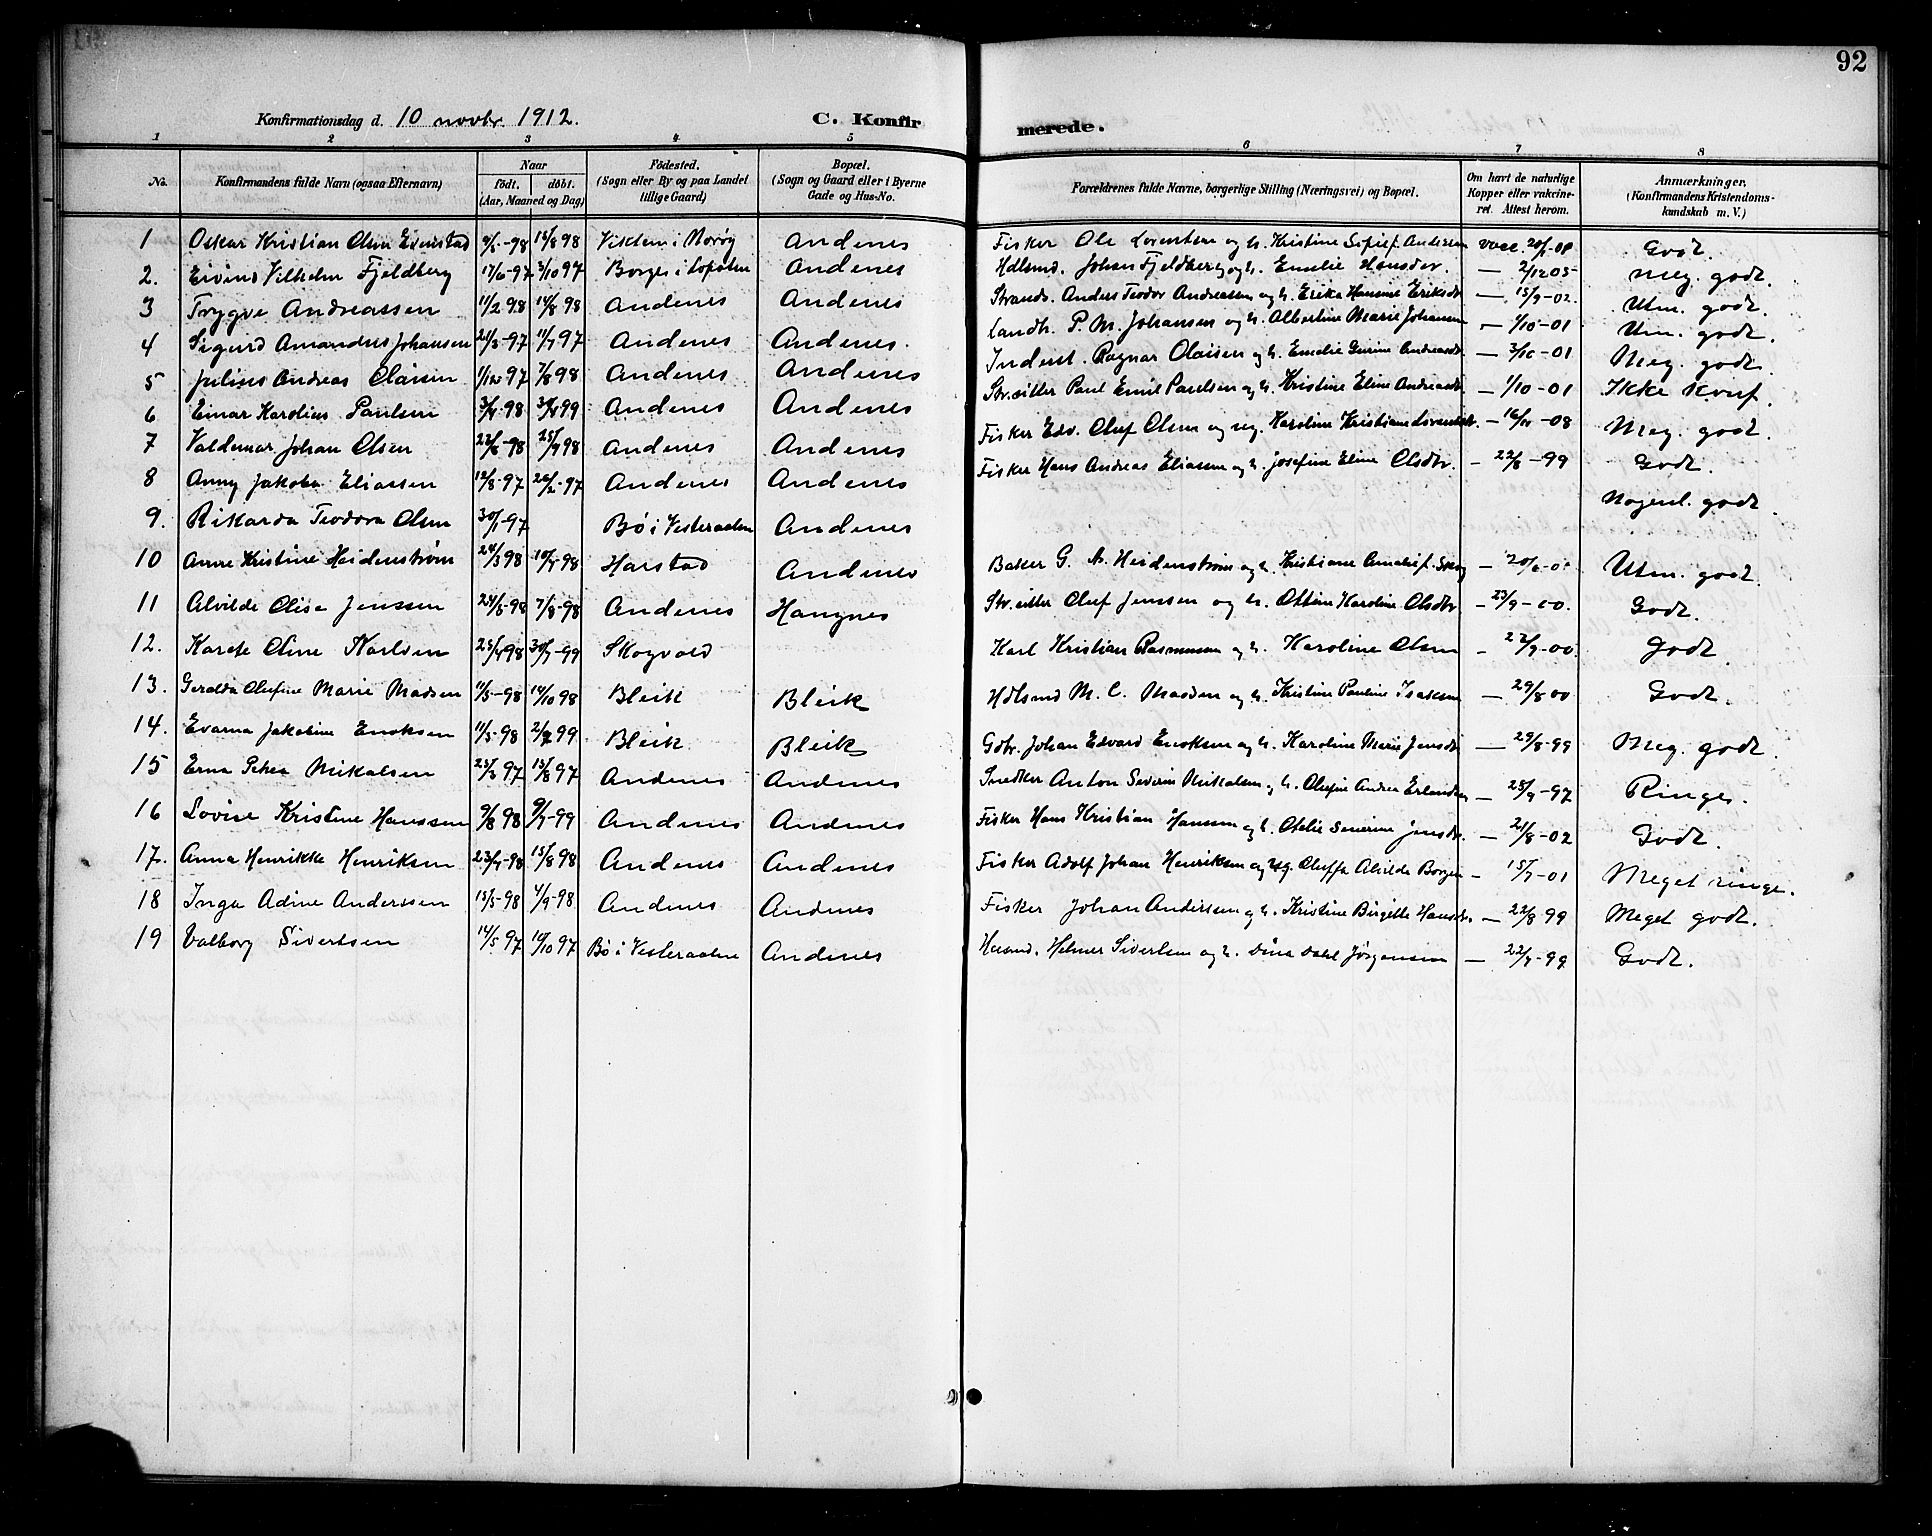 92
Konfirmationsdag d. 10 novbr. 1912. C. Konfirmerede.
1 2 3 4 5 6 7 8
No. Konfirmandens fulde Navn (ogsaa Efternavn) Naar født. døbt. (Aar, Maaned og Dag) Fødested. (Sogn eller By og paa Landet tillige Gaard) Bopæl. (Sogn og Gaard eller i Byerne Gade og Hus-No. Forældrenes fulde Navne, borgerlige Stilling (Næringsvei) og Bopæl. Om havt de naturlige Kopper eller vakcineret. Attest herom. Anmærkninger. (Konfirmandens Kristendomskundskab m. V.)
1 Oskar Kristian Olsen -98 14/8 98 i Andenes Fisker Ole Lorentsen og h. Kristine vacc. 20/1-08 Godt.
2. Eivind Vilhelm Fjeldberg 17/6-97 3/10 97 Borge i Lofoten Andenes Hdlsmd. Johan Fjeldberg og h. Emelie Hansdtr. — 2/12 05 Meg. godt.
3 Trygve Andreassen 11/2 98 14/8 98 Andenes Andenes Strands. Anders Teodor Andreassen og h. Erika Hansine Eriksdtr — 15/9-02. Utm. godt.
4 Sigurd Amandus Johansen 21/3-97 11/7 97 Andenes Andenes. Landh. P. M. Johansen og h. Albertine Marie Johansen — 1/10-01 Utm. godt.
5 Julius Andreas Olaisen 1/12 97 7/8 98 Andenes Andenes Inderst. Ragnar Olaisen og h. Emelie Andreasdtr. — 3/10-01 Meg. godt.
6 Einar Karolius Paulsen 98 99 Andenes Andenes Str.sitter Paul Emil Paulsen og h. Kristine Eline Andreasdtr. — 1/10-01 Ikke konf.
7 Valdemar Johan Olsen 22/6-98 25/9 98 Andenes Andenes Fisker Edv. Oluf Olsen og Karoline Kristiane -08 Meg. godt.
8 Anny Jakoba Eliassen 12/8-97 26/12-97 Andenes Andenes Fisker Hans Andreas Eliassen og h. Josefine Eline Olsdtr. - 22/8-99 Godt.
9. Rikarda Teodora Olsen 30/1-97 Bø i Vesteraalen Andenes Nogenl. godt.
10 Anne Kristine Heidenstrøm 24/3 98 98 Harstad Andenes Baker G. A. Heidenstrøm og h. Kristiane — Utm. godt.
11 Alvilde Elise Jenssen 24/5-98 7/8-98 Andenes Haugnes Str.sitter Oluf Jenssen og h. Ottine Karoline Olsdtr - 23/9-00. Godt.
12. Karete Oline Karlsen 25/4 98 30/7-99 Skogvold Karl Kristian Rasmussen og h. Karoline Olsen - 22/9-00. Godt.
13. Geralda Olufine Marie Madsen 11/5-98 14/10 98 Bleik Bleik Hdlsmd M. C. Madsen og h. Kristine Pauline Isaksen — 29/8 00 Godt.
14. Evarna Jakobine Enoksen 11/3-98 2/7 99 Bleik Bleik Gbr. Johan Edvard Enoksen og h. Karoline Marie Jensdtr — 29/8-99 Meg. godt.
15 Erna Petra Mikalsen 23/3 97 15/8 97 Andenes Andenes Snedker Anton Severin Mikalsen og h. Olufine Andrea Erlandsen — 25/9-97 Ringe.
16 Lovise Kristine Hanssen 9/8 98 9/7-99 Andenes Andenes Fisker Hans Kristian Hanssen og h. Otelie Severine Jensdtr. — 21/8-02 Godt.
17. Anna Henrikke Henriksen 23/4-98 15/8 98 Andenes Andenes Fisker Adolf Johan Henriksen og Oluffa Alvilde Borgen - 15/7-01 Meget ringe.
18 Inga Adine Anderssen 15/5-98 4/9-98 Andenes Andenes Fisker Johan Anderssen og h. Kristine Birgitte Hansdtr. — 22/8 99 Meget godt.
19 Valborg Sivertsen 14/5.97 10/10 97 Bø i Vesteraalen Andenes Helmer Sivertsen og h. Dina Dahl Jørgensen — 22/9-99 Godt.